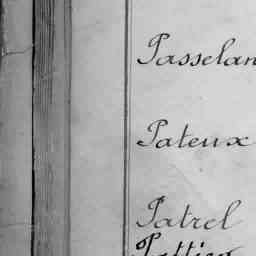 Passelan
Pateux
Patrel